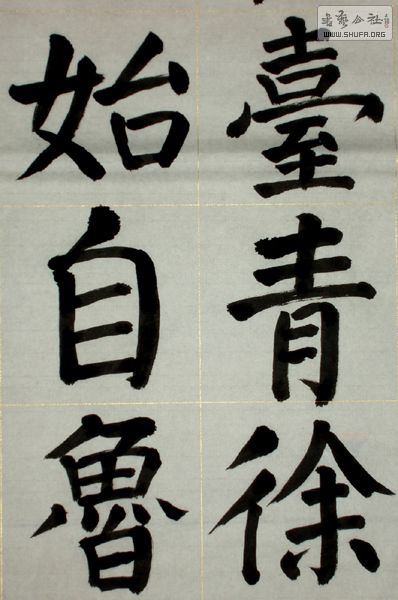 臺青徐
始自魯
書藝公社
WWW.SHUFA.ORG